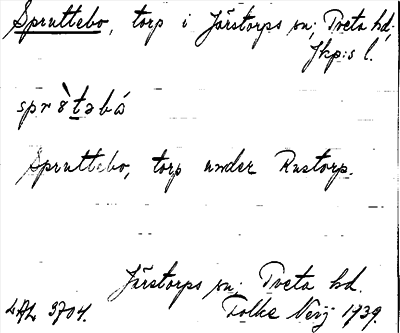 Spruttebo, torp i Järstorps sn; Tveta hd;
Jkp:s l.
sprø̀təbó
Spruttebo, torp under Rustorp.
Järstorps sn: Tveta hd.
LAL 3704. Folke Nerj 1739.